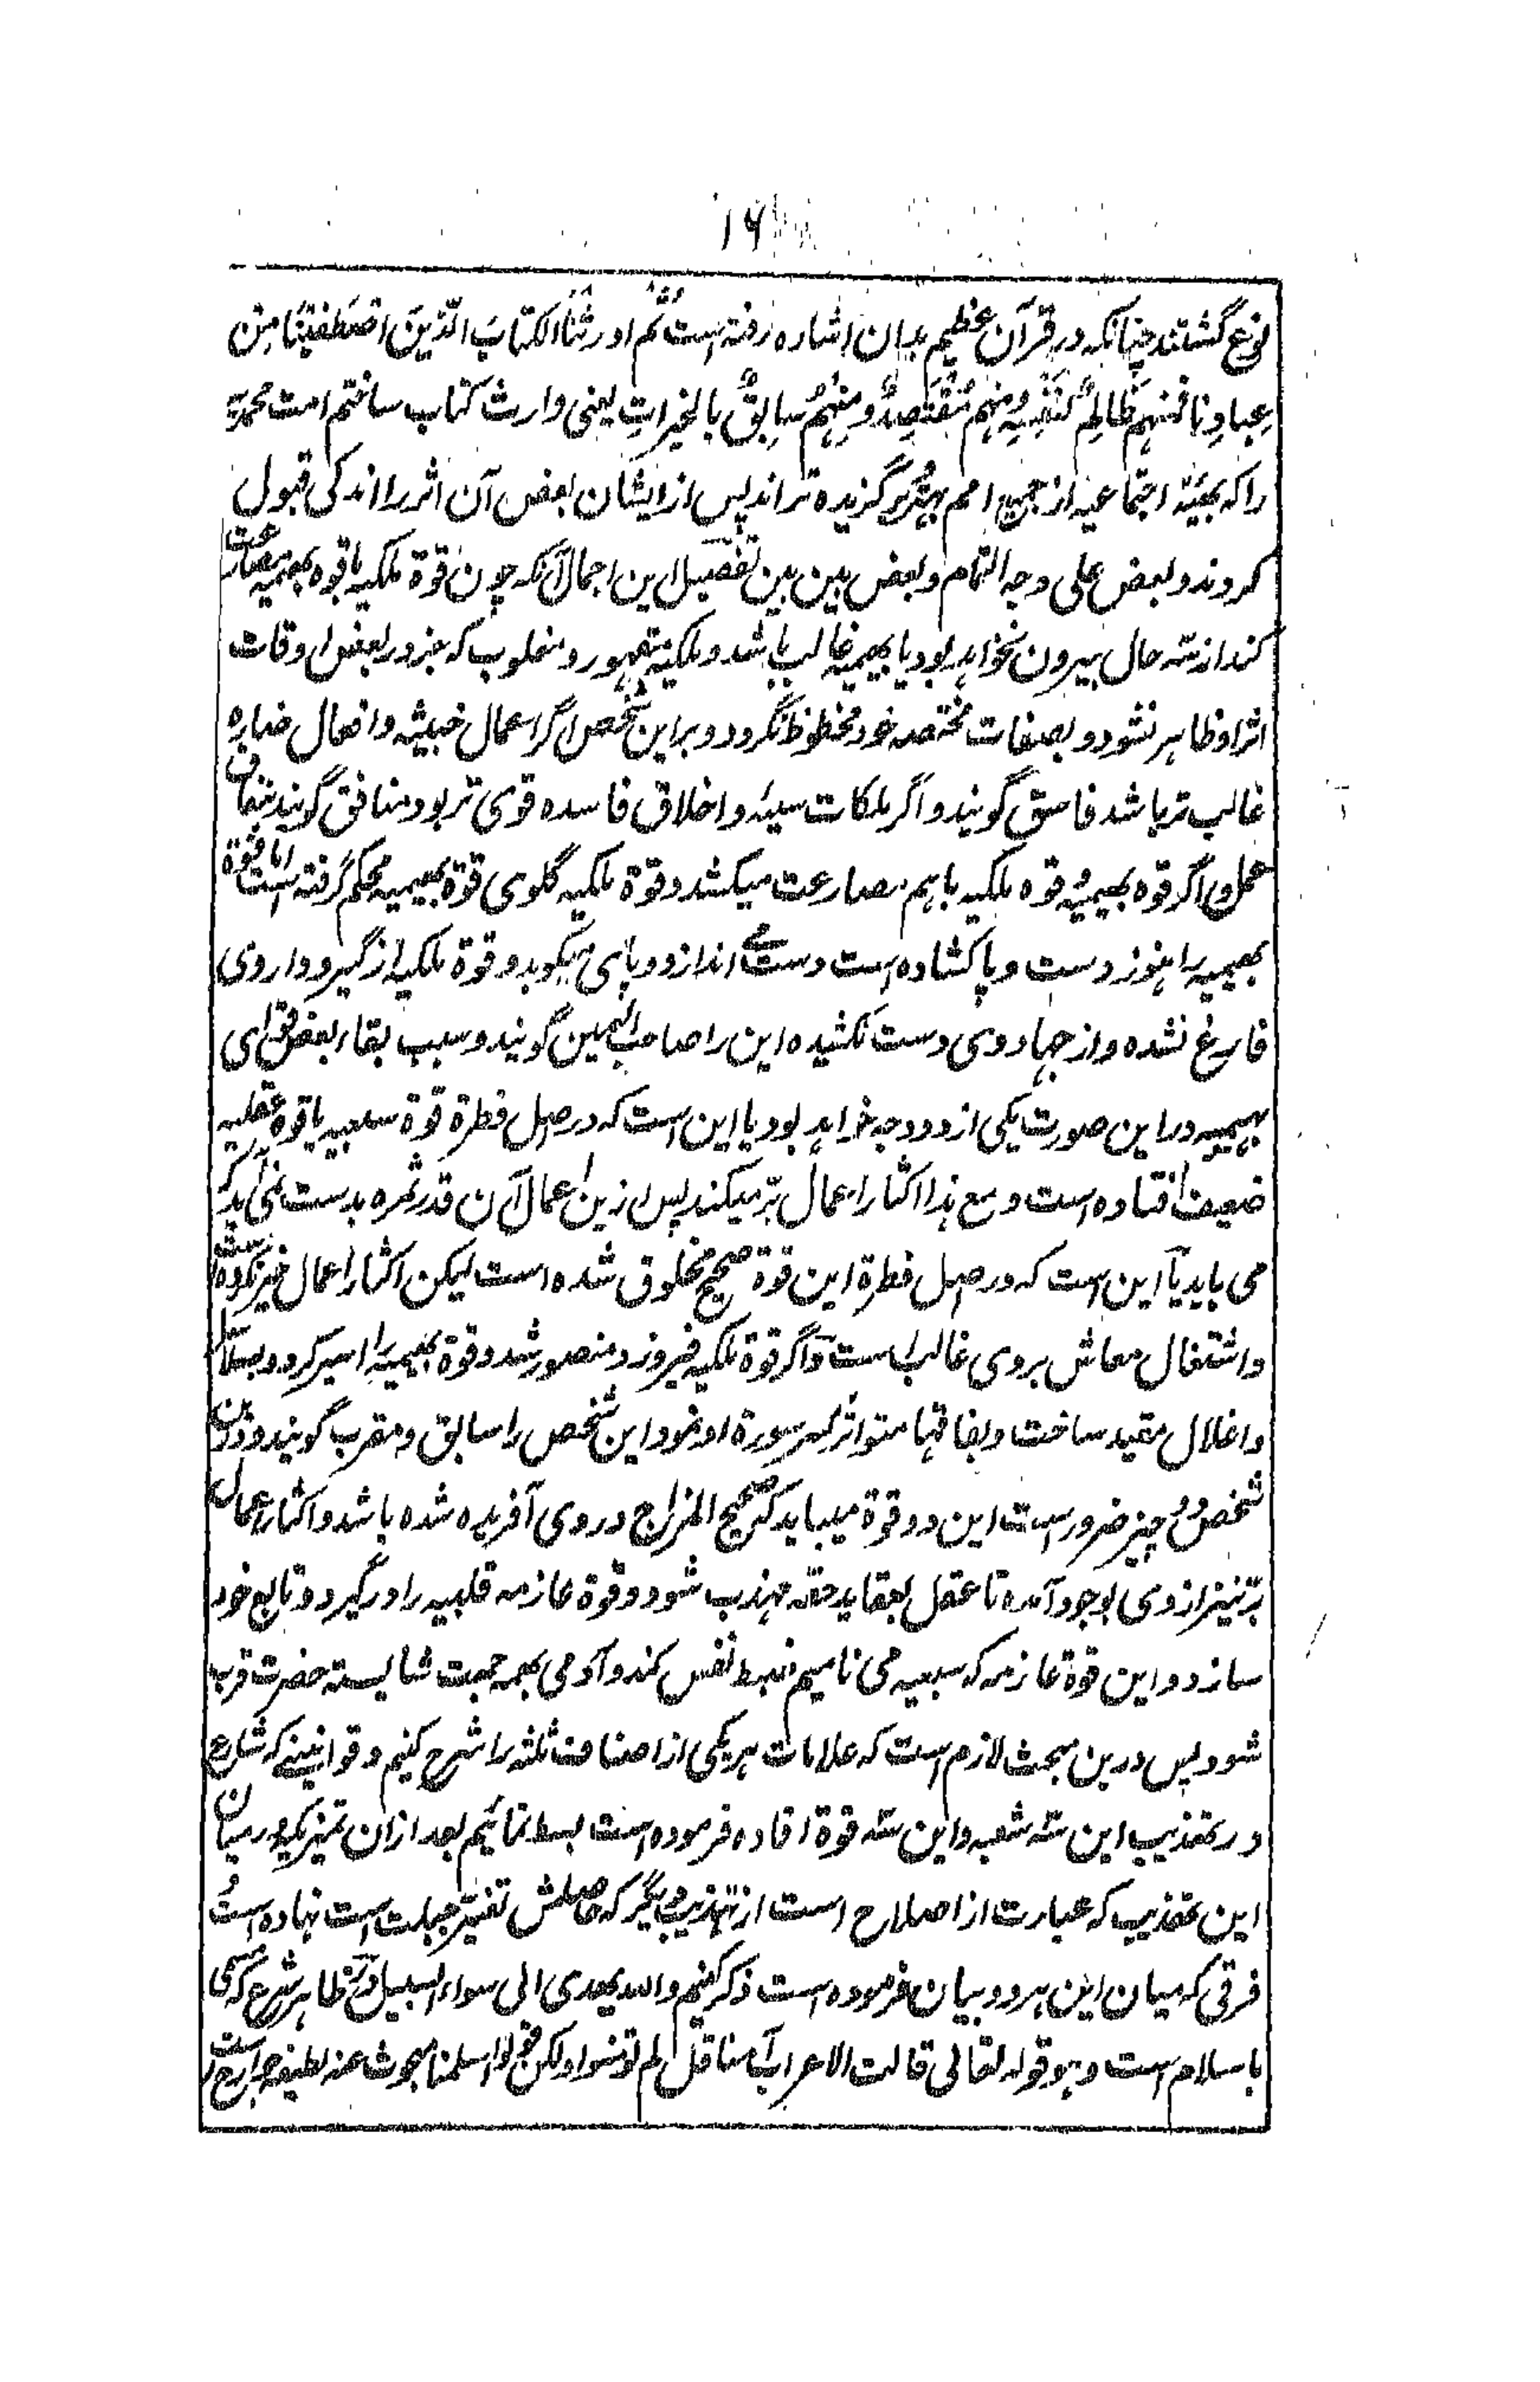 ۱۶
نوع گشتند چنانکه در قرآن عظیم بدان اشاره رفته است ثُمَّ اورثنَا الکتابَ الَّذِینَ اصْطَفَیْنَا مِنْ
عِبادِنا فمنهم ظَالِمٌ لنَفْسِه ومِنهم مُّقْتَصِدٌ ومِنْهُمْ سابِقٌ بالخیراتِ یعنی وارث کتاب ساختم امت محمدیه
را که بهیئة اجتماعیه از جمیع امم بهتر و برگزیده تراند پس از ایشان بعض آن اثر را اندکی قبول
کردند و بعض علی وجه التمام و بعض بین بین تفصیل این اجمال آنکه چون قوة ملکیه با قوه بهیمیه مصارعت
کند از سه حال بیرون نخواهد بود یا بهیمیه غالب باشد و ملکیه مقهور و مغلوب که جز در بعض اوقات
اثر او ظاهر نشود و بصفات مختصه خود محظوظ نگردد و براین شخص اگر اعمال خبیثه و افعال ضاره
غالب تر باشد فاسق گویند و اگر ملکات سیئه و اخلاق فاسده قوی تر بود منافق گویند بنفاق
عمل و اگر قوه بهیمیه و قوه ملکیه باهم مصارعت میکشد و قوة ملکیه گلوی قوة بهیمیه محکم گرفته است اما قوة
بهیمیه را هنوز دست و پا کشاده است دست می اندازد و پای میکوبد و قوة ملکیه از گیرودار وی
فارغ نشده و از جهاد وی دست نکشیده این را صاحب الیمین گویند و سبب بقاء بعض قوای
بهیمیه در این صورت یکی از دو وجه خواهد بود یا این است که در اصل فطرة قوة سبعیه یا قوة عقلیه
ضعیف افتاده است و مع هذا اکثار اعمال برّ میکند پس ازین اعمال آن قدر ثمره بدست نمی آید که
می باید یا این است که در اصل فطرة این قوة صحیح مخلوق شده است لیکن اکثار اعمال خیر نکرده است
و اشتغال معاش بروی غالب است و اگر قوة ملکیه فیروز و منصور شد و قوة بهیمیه را اسیر کرد و بسلاسل
و اغلال مقید ساخت و بفاقتها متواتر کسر سورة او نمود این شخص را سابق و مقرب گویند و درین
شخص دو چیز ضرور است این دو قوة میباید که صحیح المزاج در وی آفریده شده باشد و اکثار اعمال
برّ نیز از وی بوجود آمده تا عقل بعقاید حقه مهذب شود و قوة عازمه قلبیه را درگیرد و تابع خود
سازد و این قوة عازمه که سبعیه می نامیم ضبط نفس کند و آدمی بهمه جهت شایسته حضرت قرب
شود پس درین مبحث لازم است که علامات هر یکی از اصناف ثلثه را شرح کنیم و قوانینے که شارع
در تهذیب این سه شعبه و این سه قوة افاده فرموده است بسط نمائیم بعد ازان تمیز یکه در میان
این تهذیب که عبارت از اصلاح است از تهذیب دیگر که حاصلش تغییر جبلت است نهاده است و
فرقی که میان این هر دو بیان فرموده است ذکر کنیم والله یهدی الی سواء السبیل و ظاهر شرع که مسمی
باسلام است و هو قوله تعالی قالت الاعراب آمنا قل لم تؤمنوا ولکن قولوا اسلمنا مبحوث عنه لطیفه جوارح است